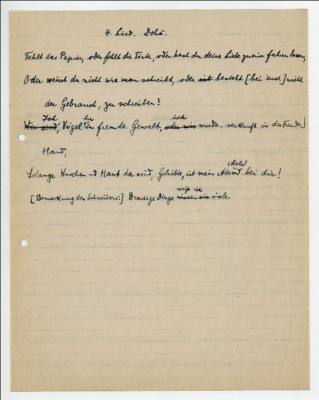 4. Lied. Dohā.
Fehlt das Papier, oder fehlt die Tinte, oder hast du deine Liebe zu mir fahren lassen,
Oder weisst du nicht wie man schreibt, oder ist besteht [bei euch] nicht
der Gebrauch, zu schreiben!
Ich
Vögel in fremde Gewalt, ich wurde verkauft in des Fremden
Hand,
Solange Knochen u Haut da sind, Geliebte, ist mein Atem bei dir!
[Bemerkung des Schreibers:] Derartige Dinge viele